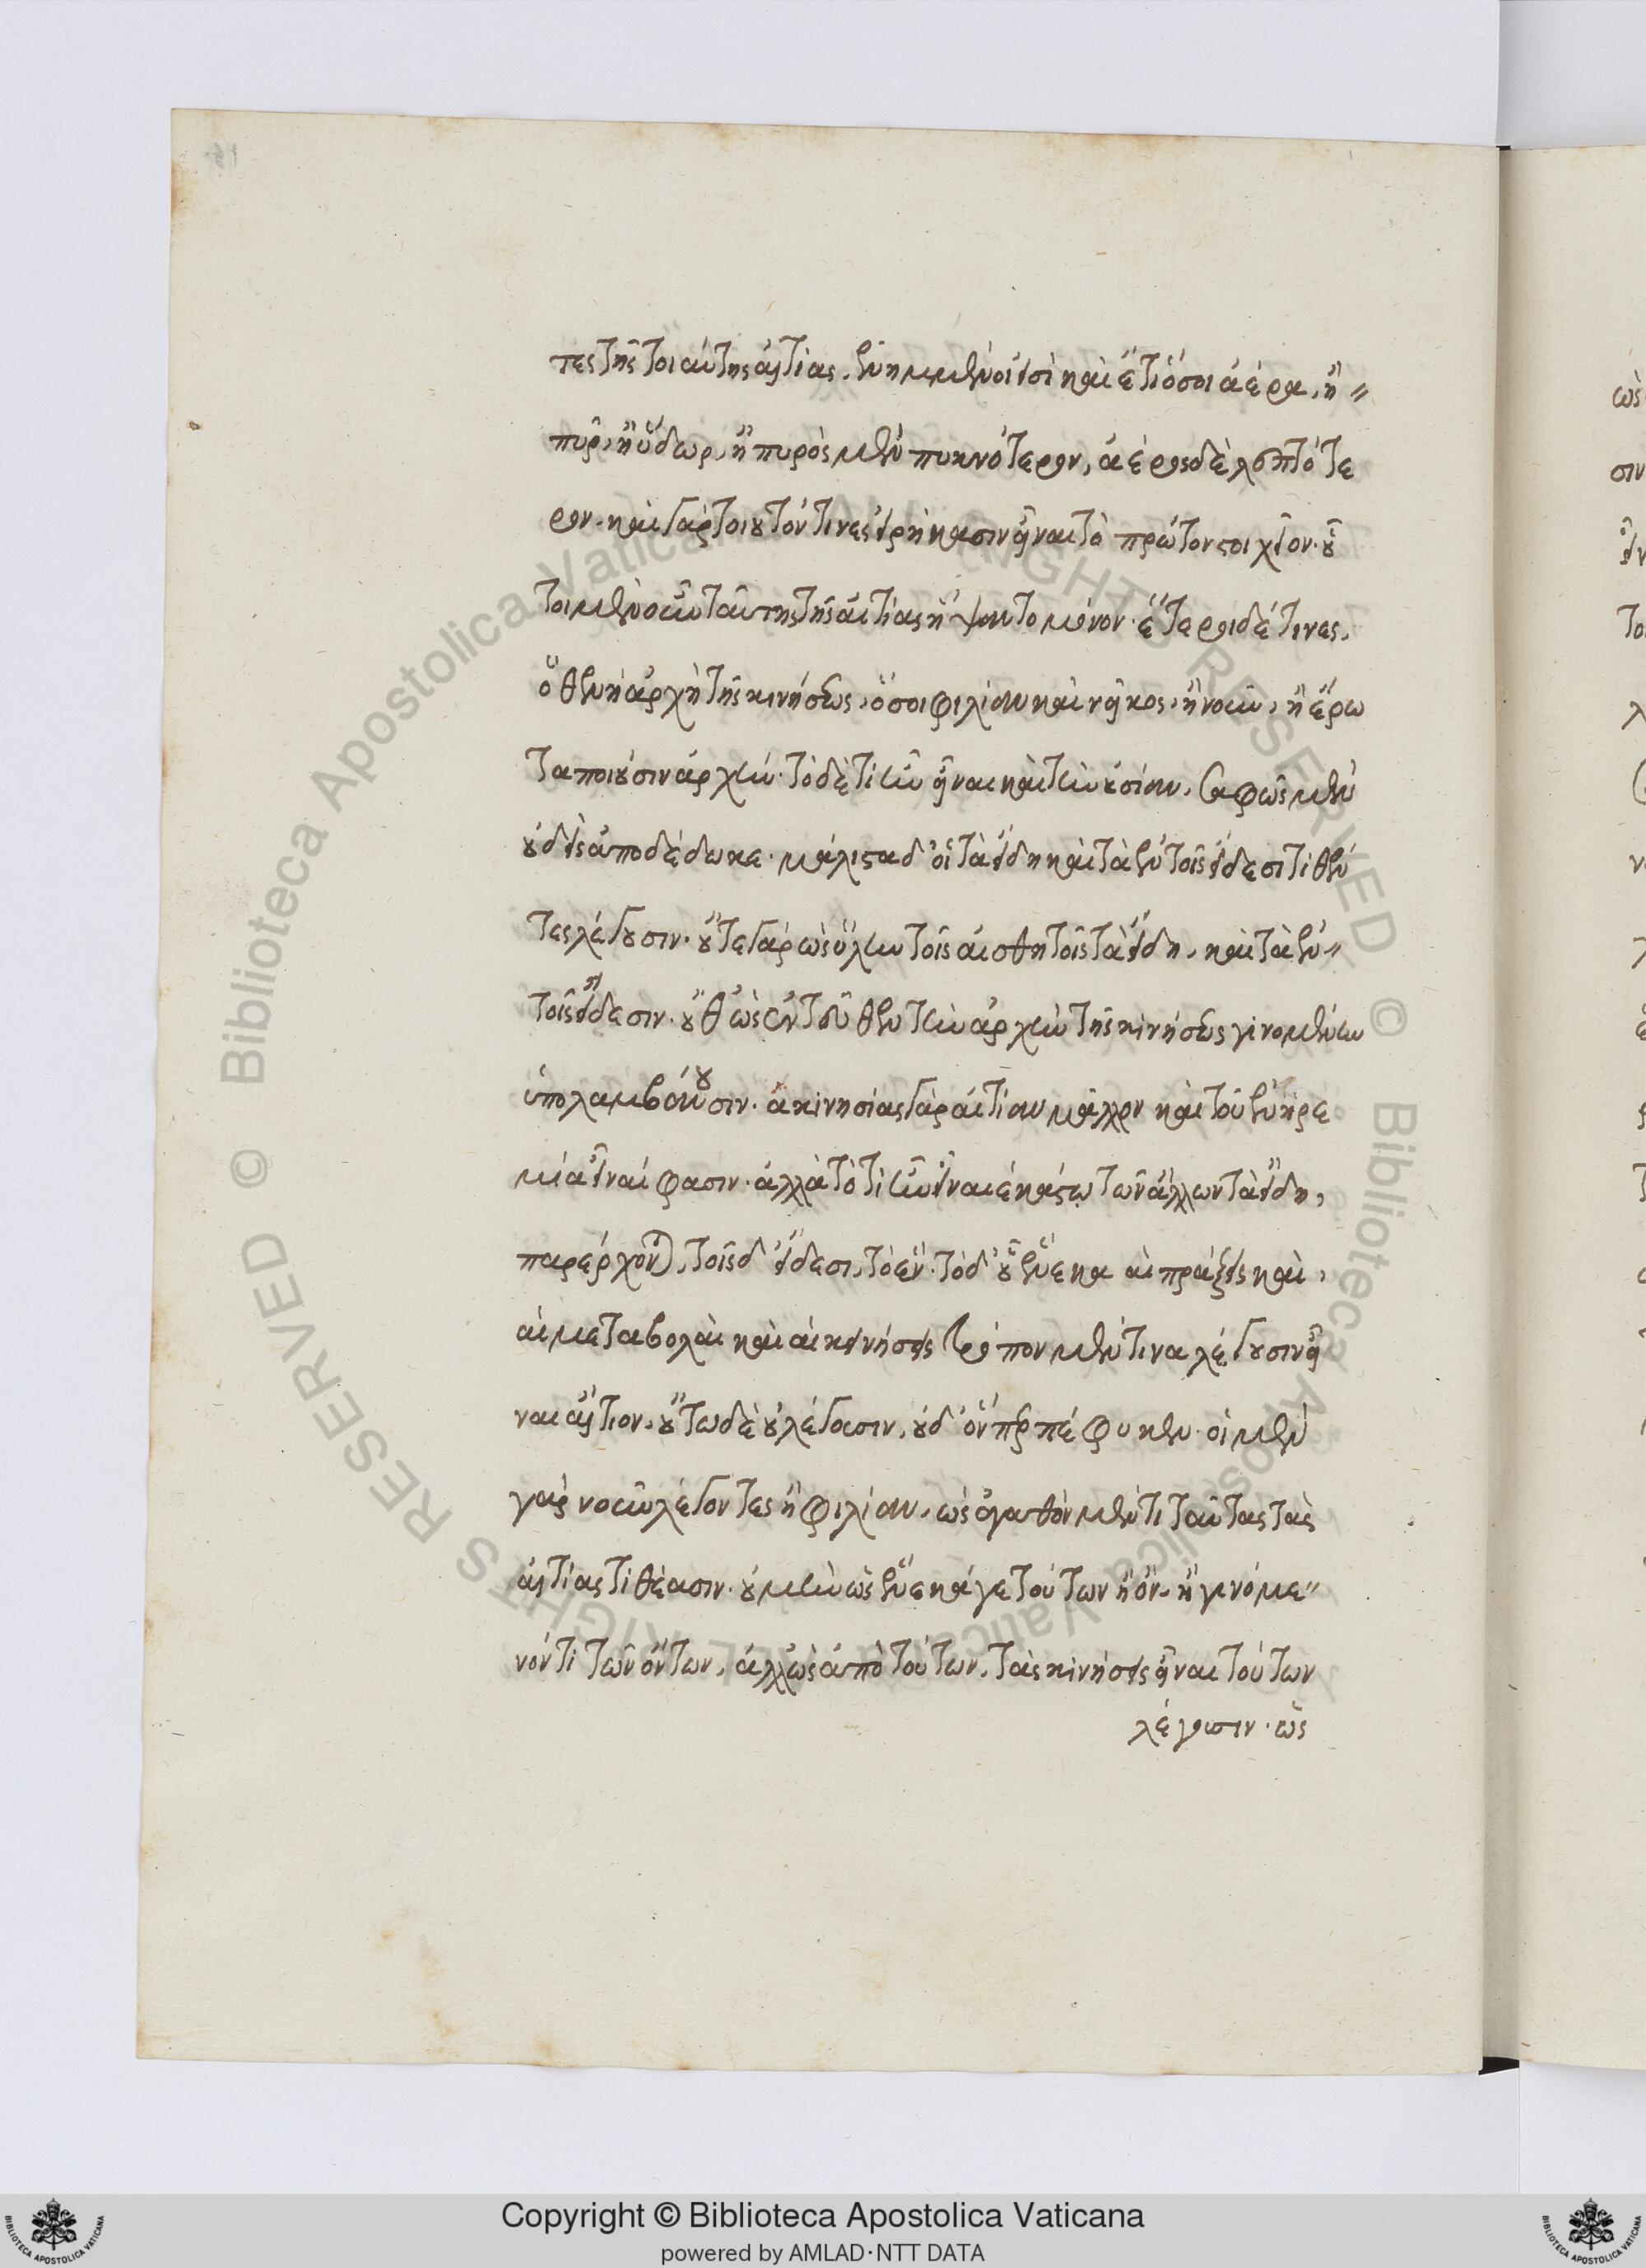 τες τῆς τοιαύτης αἰτίας. ἔνυλμεν οἵ εἰσὶ καὶ ἔτι ὅσοι ἀέρα, ἢ
πῦρ, ἢ ὕδωρ, ἢ πυρὸς μὲν πυκνότερον, ἀέρος δὲ λεπτότε
ρον. καὶ γὰρ τοιοῦτόν τινες εἰρήκασιν εἶναι τὸ πρῶτον στοιχεῖον. οὗ
τοι μὲν οὖν ταύτης τῆς αἰτίας ἥψαντο μόνον. ἕτεροι δέ τινες,
ὅθεν ἡ ἀρχὴ τῆς κινήσεως, ὅσοι φιλίαν καὶ νεῖκος, ἢ νοῦν, ἢ ἔρω
τα ποιοῦσιν ἀρχήν. τὸ δὲ τί ἦν εἶναι καὶ τὴν οὐσίαν, σαφῶς μὲν
οὐδεὶς ἀποδέδωκε. μάλιστα δ' οἱ τὰ εἴδη καὶ τὰ ἐν τοῖς εἴδεσι τιθέν
τες λέγουσιν. οὔτε γὰρ ὡς ὕλην τοῖς αἰσθητοῖς τὰ εἴδη, καὶ τὰ ἐν
τοῖς εἴδεσιν. οὔθ' ὡς ἐντεῦθεν τὴν ἀρχὴν τῆς κινήσεως γινομένην
ὑπολαμβάνουσιν. ἀκινησίας γὰρ αἰτίαν μᾶλλον καὶ τοῦ ἐν ἠρε
μίᾳ εἶναί φασιν. ἀλλὰ τὸ τί ἦν εἶναι ἑκάστῳ τῶν ἄλλων τὰ εἴδη,
παρέρχονται, τοῖς δ' εἴδεσι, τὸ ἕν. τὸ δ' οὗ ἕνεκα αἱ πράξεις καὶ,
αἱ μεταβολαὶ καὶ αἱ κεινήσεις τρόπον μέν τινα λέγουσιν εἶ
ναι αἴτιον, οὕτω δὲ οὐ λέγουσιν, οὐδ' ὅνπερ πέφυκεν. οἱ μὲν
γὰρ νοῦν λέγοντες ἢ φιλίαν, ὡς ἀγαθὸν μέν τι ταύτας τὰς
αἰτίας τιθέασιν. οὐ μὴν ὡς ἕνεκά γε τούτων ἢ ὂν, ἢ γινόμε
νόν τι τῶν ὄντων, ἀλλ' ὡς ἀπὸ τούτων, τὰς κινήσεις εἶναι τούτων
λέγουσιν. ὡς
Copyright © Biblioteca Apostolica Vaticana
powered by AMLAD·NTT DATA